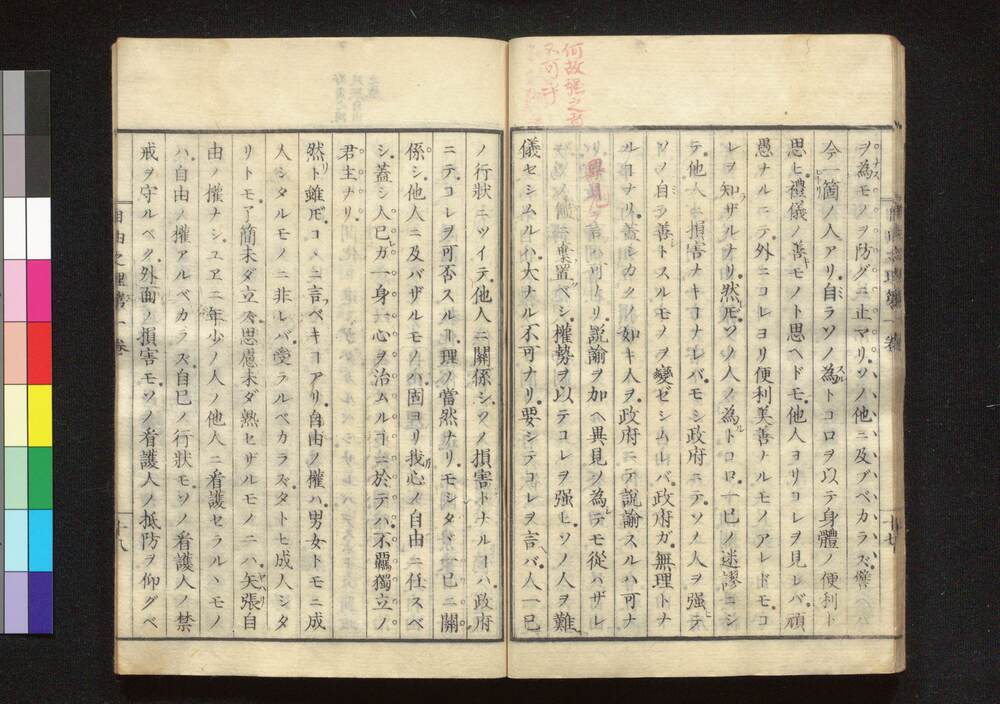 何故強之
ヲ為モノヲ防グニ止マリ。ソノ他ニ及ブベカラズ。譬ヘバ
今一箇ノ人アリ。自ラソノ為トコロヲ以テ身體ノ便利ト
思ヒ。禮儀ノ善モノト思ヘドモ。他人ヨリコレヲ見レバ。頑
愚ナルニテ。外ニコレヨリ便利美善ナルモノアレドモ。コ
レヲ知ザルナリ。然ルニソノ人ノ為トコロ。一己ノ迷謬ニシ
テ。他人ニ損害ナキコナレバ。モシ政府ニテ。ソノ人ヲ強テ
ソノ自ラ善トスルモノヲ變ゼシムレバ。政府ガ無理トナ
ルコナリ。蓋シカクノ如キ人ヲ。政府ニテ說諭スルハ可ナ
リ。異見
可ナリ。說諭ヲ加ヘ異見ヲ為テモ從ハザレ
棄置ベシ。權勢ヲ以テコレヲ强ヒ。ソノ人ヲ難
儀セシムルハ。大ナル不可ナリ。要シテコレヲ言バ。人一己
ノ行狀ニツイテ。他人ニ關係シソノ損害トナルコハ。政府
ニテコレヲ可否スルコ理ノ當然ナリ。モシタヾ一己ニ關
係シ。他人ニ及バザルモノハ。固ヨリ我心ノ自由ニ仕スベ
シ。蓋シ人己ガ一身一心ヲ治ムルコニ於テハ。不羈獨立ノ
君主ナリ。
然リト雖𪜈。コヽニ言ベキコアリ。自由ノ權ハ。男女トモニ成
人シタルモノニ非レバ。受ラルベカラズ。タトヒ成人シタ
リトモ。了簡未ダ立ズ。思慮未ダ熟セザルモノニハ。矢張自
由ノ權ナシ。ユヱニ年少ノ人ノ他人ニ看護セラルヽモノ
ハ。自由ノ權アルベカラズ。自己ノ行狀モソノ看護人ノ禁
戒ヲ守ルベク。外面ノ損害モ。ソノ看護人ノ抵防ヲ仰グベ
自由之理第一卷
十七
自由之理第一卷
十八